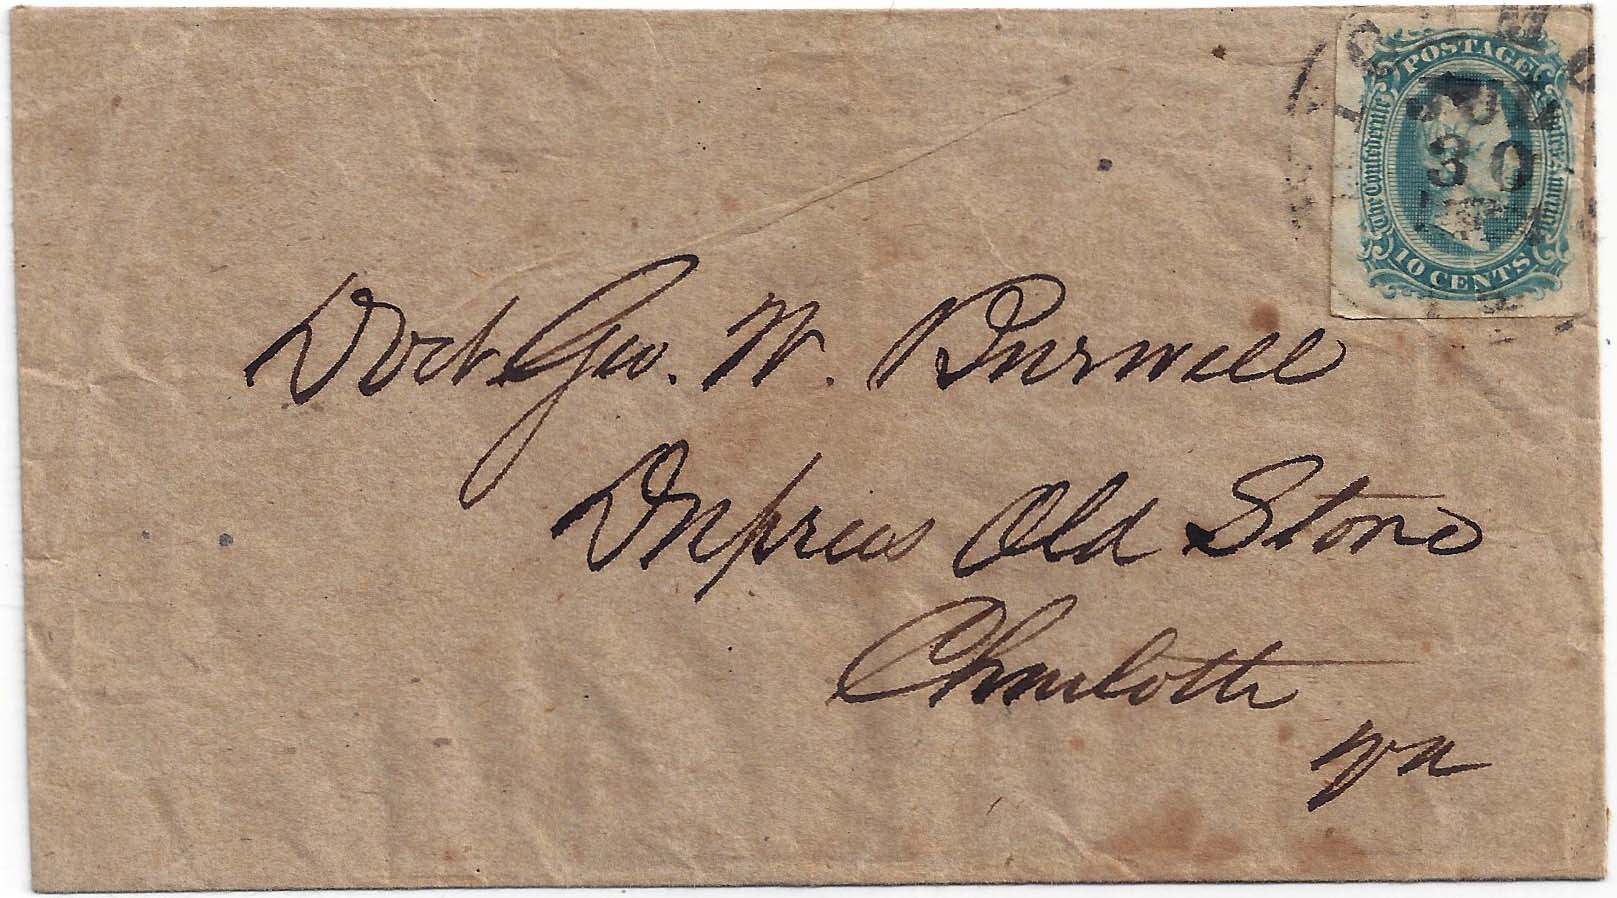 POSTAGE
The Confederate States of America
10 CENTS
JUL
30
Doct. Geo. W. Burwell
Duprees Old Store
Charlotte
Va